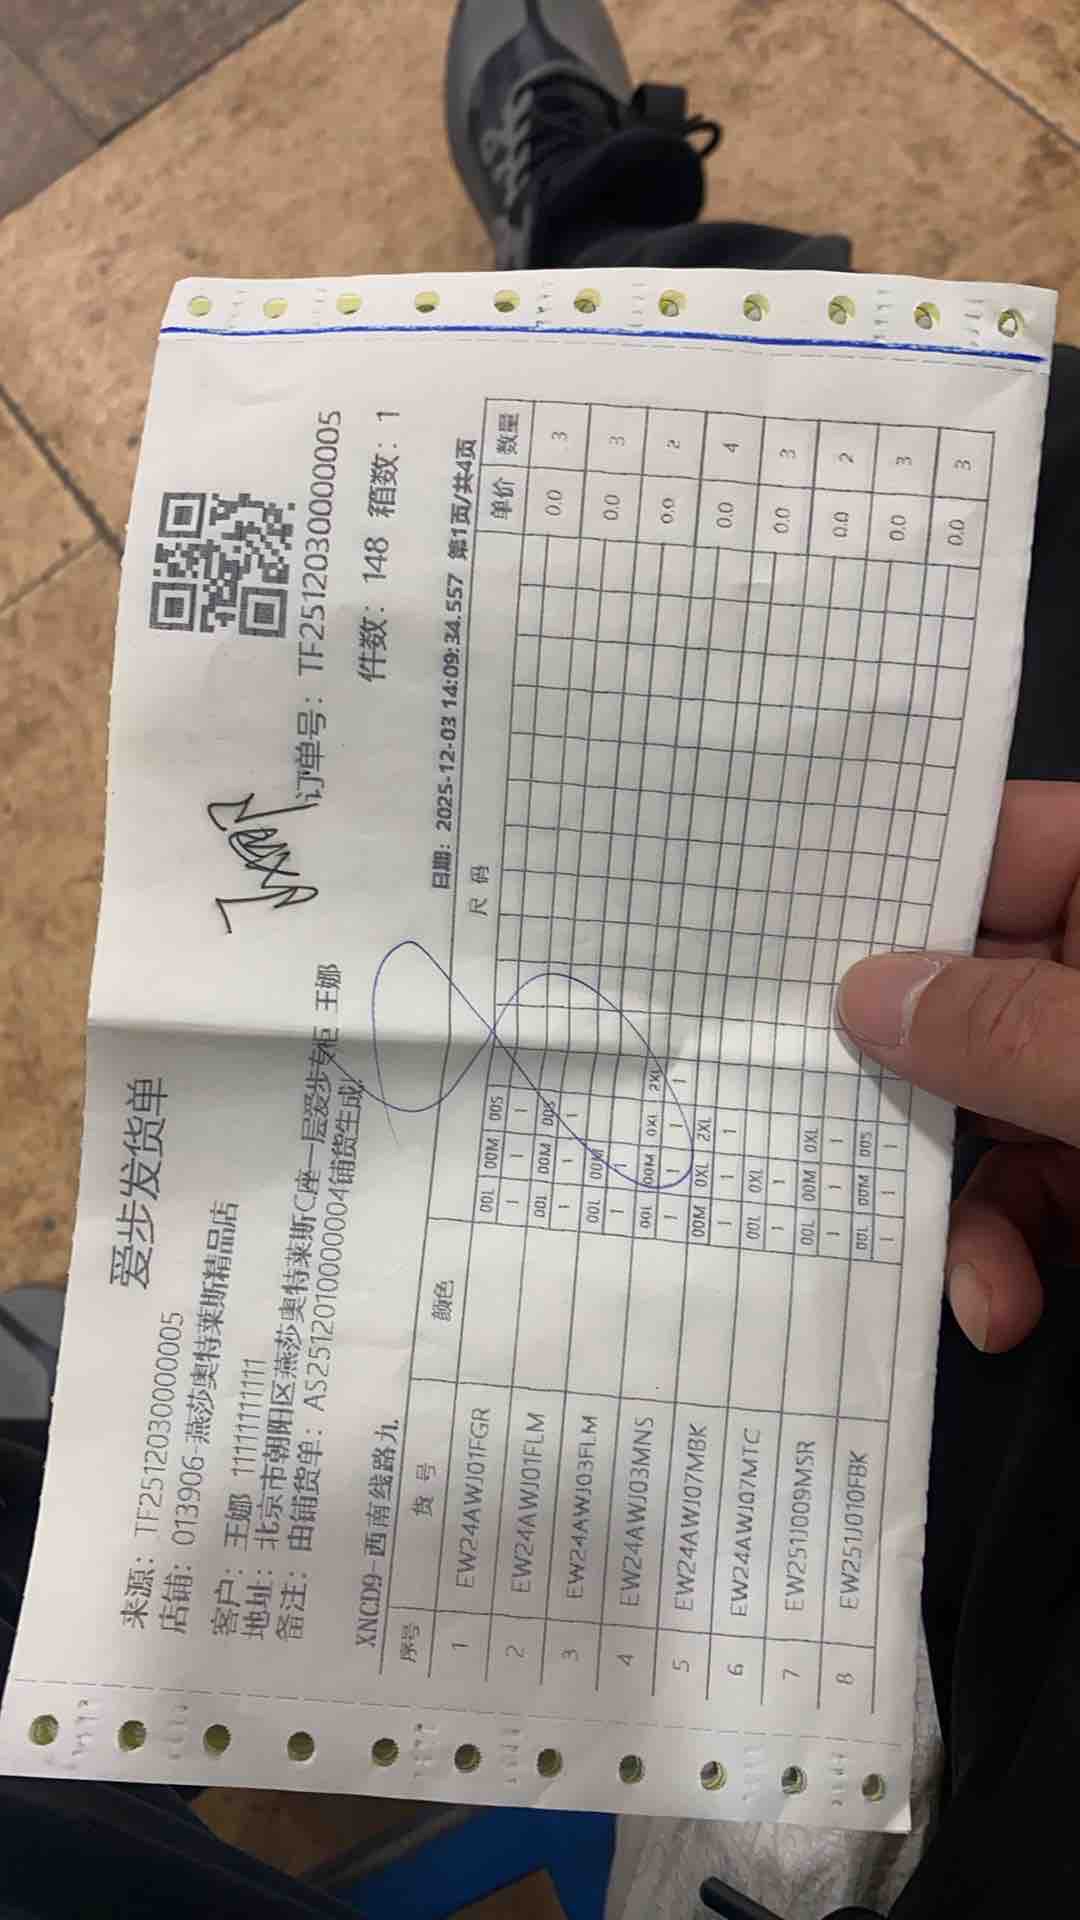 爱步发货单
来源：TF251203000005
店铺：013906-燕莎奥特莱斯精品店
客户：王娜 11111111111
地址：北京市朝阳区燕莎奥特莱斯C座一层爱步专柜 王娜
备注：由铺货单：AS251201000004铺货生成.
订单号：TF251203000005
件数：148 箱数：1
XNCD9-西南线路九
日期：2025-12-03 14:09:34.557 第1页/共4页
序号 货号 颜色 尺码 单价 数量
00L 00M 00S
1 EW24AWJ01FGR 1 1 1 0.0 3
00L 00M 00S
2 EW24AWJ01FLM 1 1 1 0.0 3
00L 00M
3 EW24AWJ03FLM 1 1 0.0 2
00L 00M 0XL 2XL
4 EW24AWJ03MNS 1 1 1 1 0.0 4
00M 0XL 2XL
5 EW24AWJ07MBK 1 1 1 0.0 3
00L 0XL
6 EW24AWJ07MTC 1 1 0.0 2
00L 00M 0XL
7 EW251J009MSR 1 1 1 0.0 3
00L 00M 00S
8 EW251J010FBK 1 1 1 0.0 3